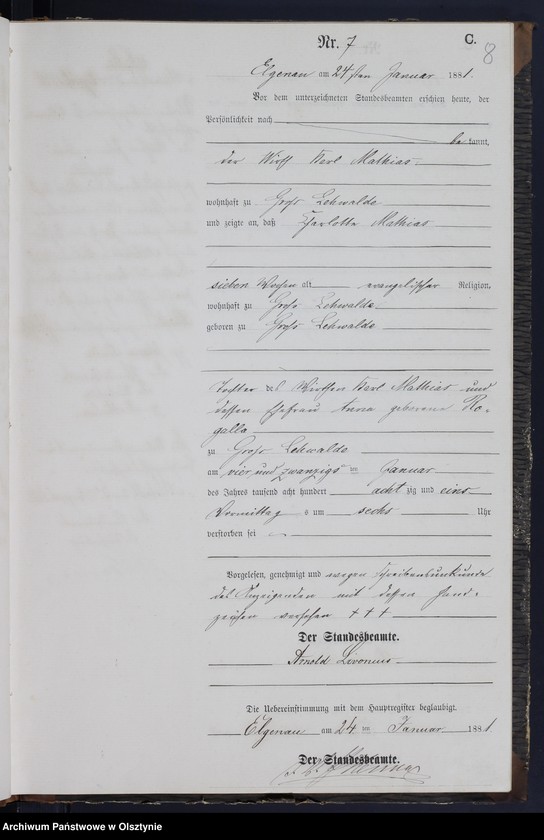 Nr. 7
C.
8
Elgenau am 24ten Januar 1881.
Vor dem unterzeichneten Standesbeamten erschien heute, der
Persönlichkeit nach
be kannt,
der Wirth Karl Mathias
wohnhaft zu Groß Lehwalde
und zeigte an, daß Charlotte Mathias
sieben Wochen alt evangelischer Religion,
wohnhaft zu Groß Lehwalde
geboren zu Groß Lehwalde
Tochter des Wirthen Karl Mathias und
dessen Ehefrau Anna geborene Ro-
galla
zu Groß Lehwalde
am vier und zwanzigs ten Januar
des Jahres tausend acht hundert acht zig und eins
Vormittag s um sechs Uhr
verstorben sei
Vorgelesen, genehmigt und wegen Schreibensunkunde
des Anzeigenden mit dessen Hand-
zeichen versehen + + +
Der Standesbeamte.
Arnold Livonius
Die Uebereinstimmung mit dem Hauptregister beglaubigt.
Elgenau am 24 ten Januar 1881.
Der Standesbeamte.
Archiwum Państwowe w Olsztynie